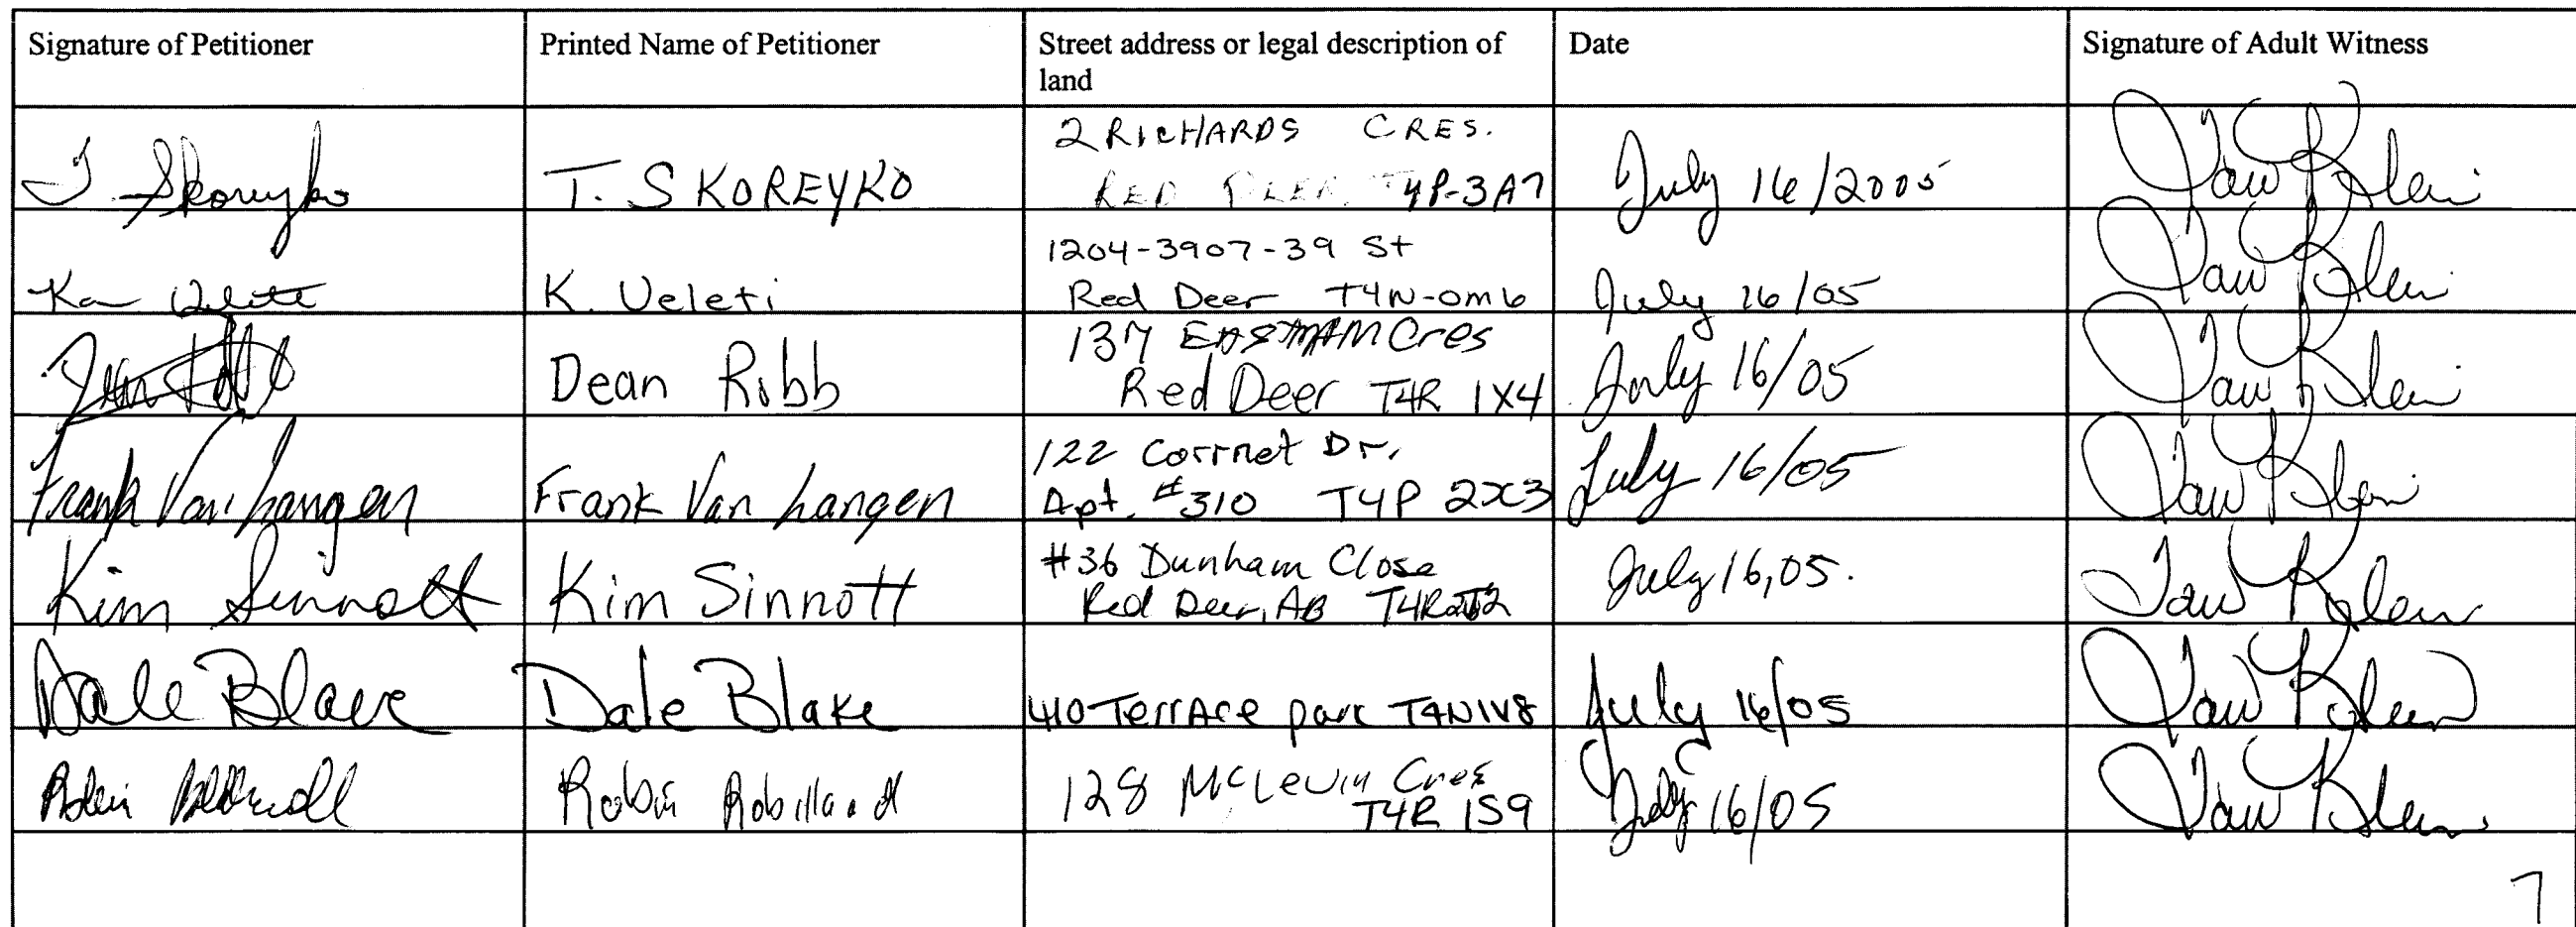 Signature of Petitioner
Printed Name of Petitioner
Street address or legal description of
land
Date
Signature of Adult Witness
T Skoreyko
T. SKOREYKO
2 RICHARDS CRES.
RED DEER T4P-3A7
July 16/2005
Klein
K. Veleti
1204-3907-39 St
Red Deer T4N-0m6
July 16/05
Klein
Dean Ribb
137 EASTMAN Cres
Red Deer T4R 1X4
July 16/05
Klein
Frank Van Langen
Frank Van Langen
122 Corrnet Dr.
Apt. #310 T4P 2X3
July 16/05
Klein
Kim Sinnott
Kim Sinnott
#36 Dunham Close
Red Deer, AB
July 16,05.
Klein
Dale Blake
Dale Blake
410 TerrAce park T4N1V8
July 16/05
Klein
Robin
Robin Robillard
128 McLevin Cres
T4R 1S9
July 16/05
Klein
7